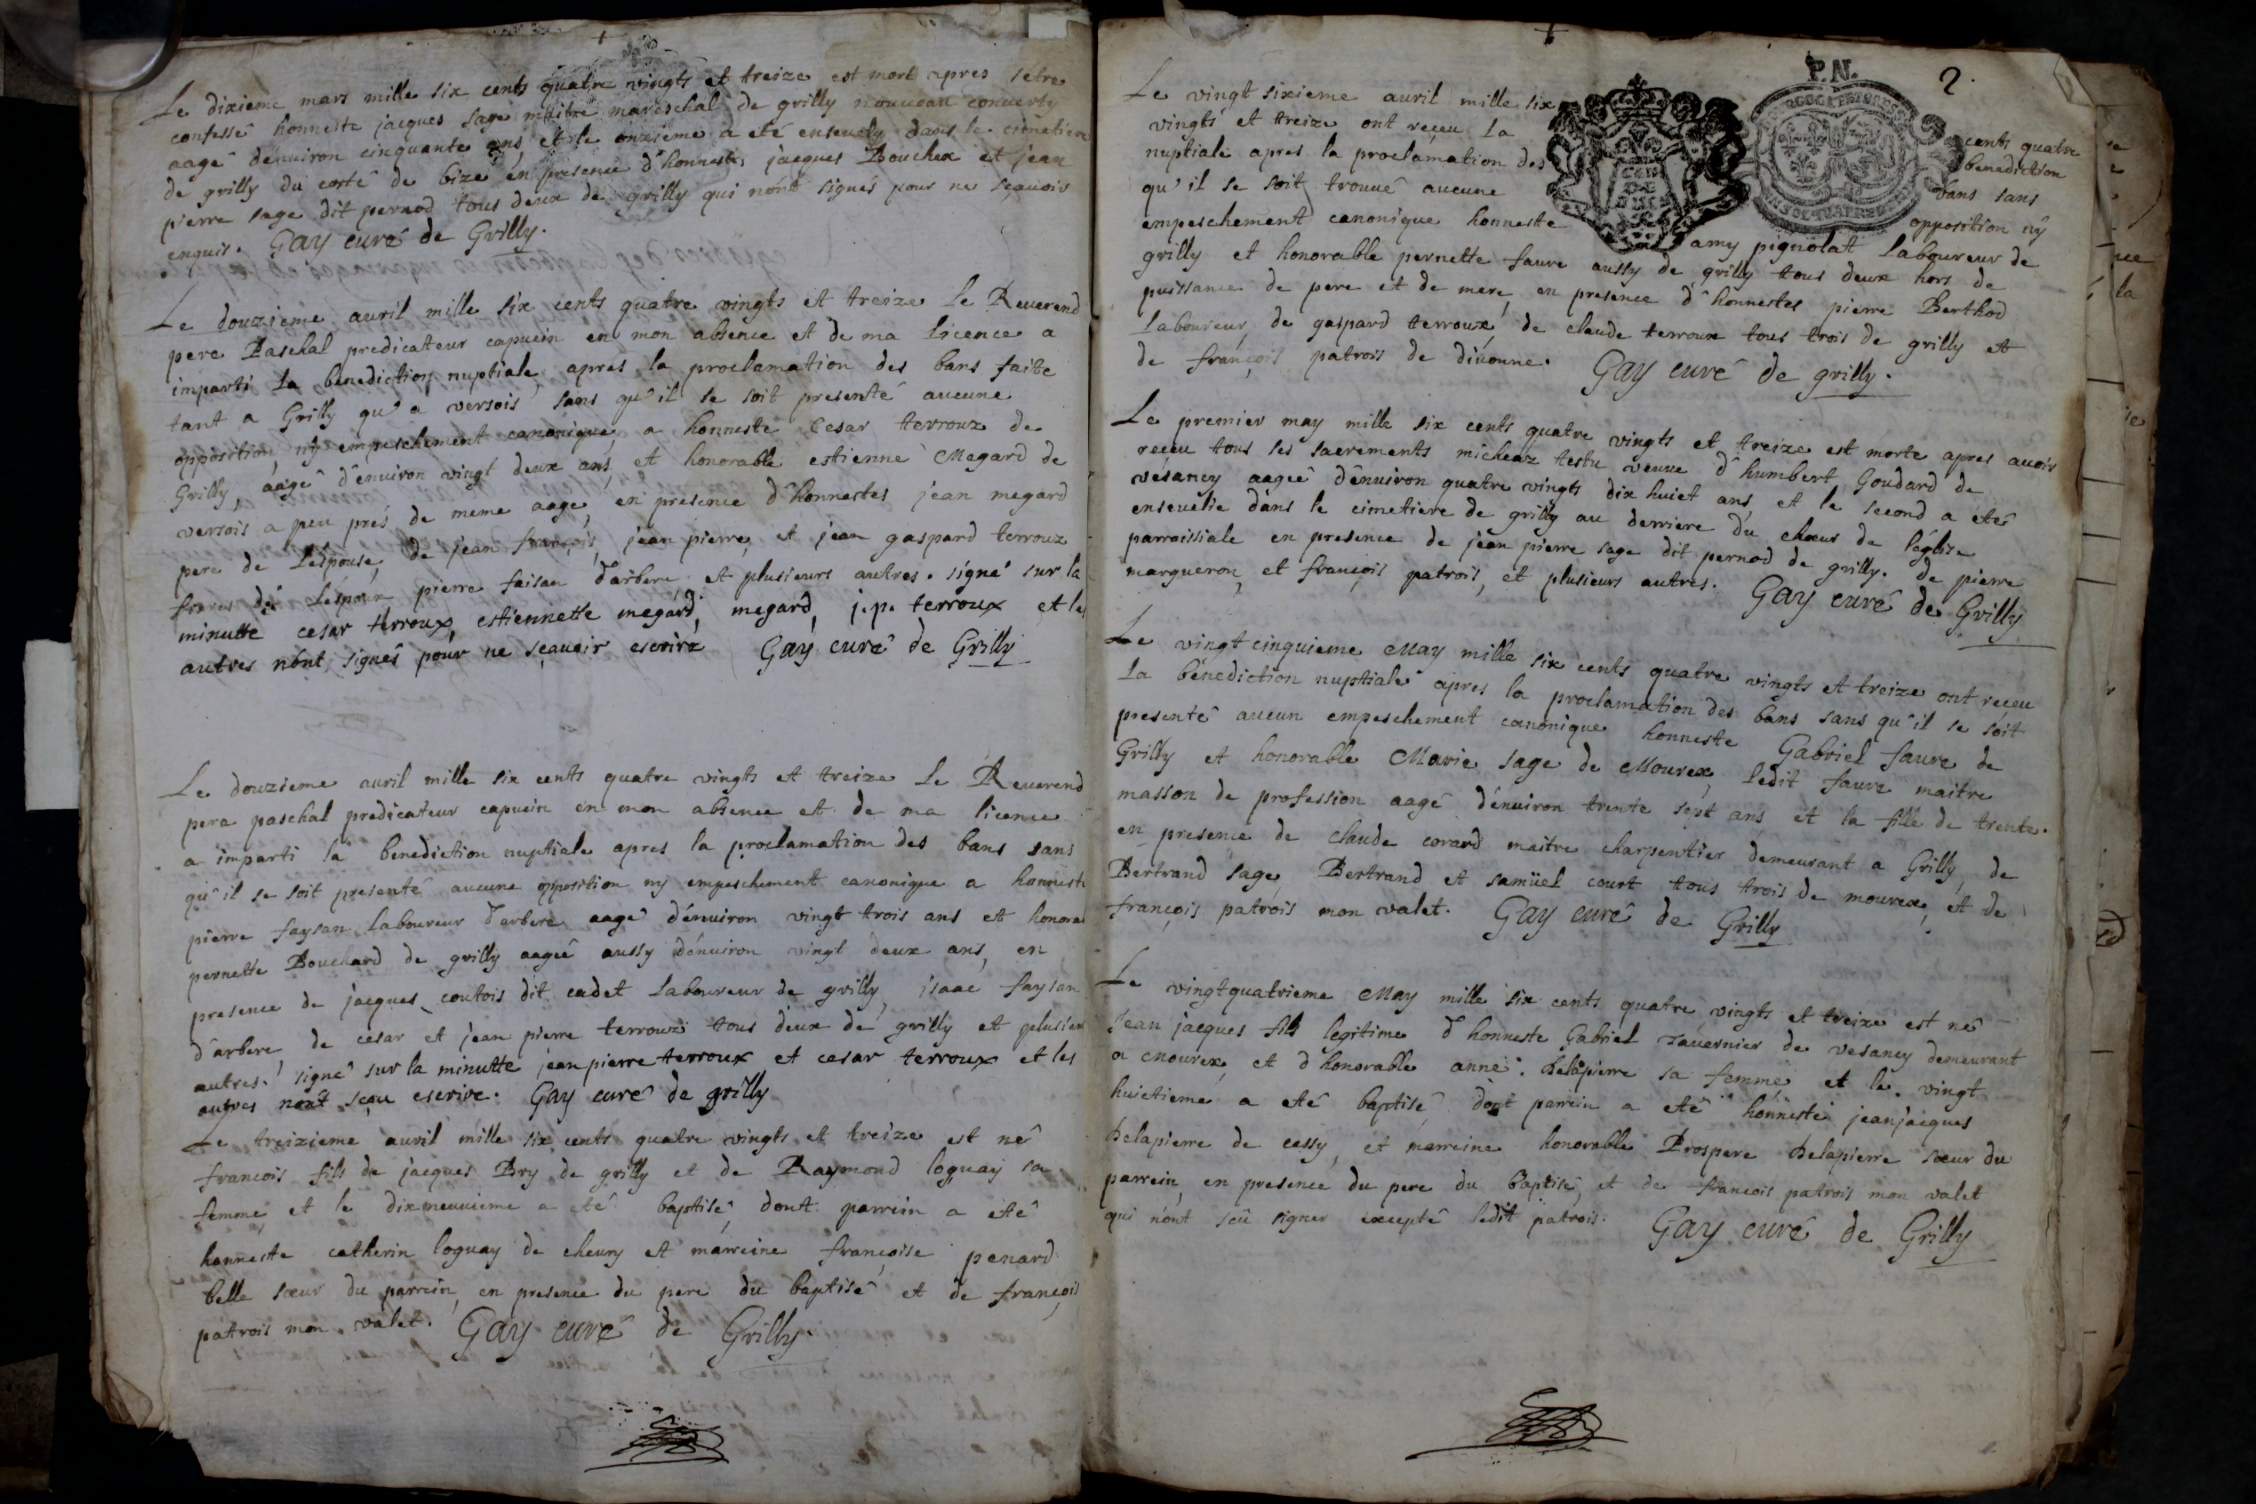 Le dixieme mars mille six cents quatre vingts et treize est mort apres s'etre
confessé honneste jacques sage maitre mareschal de grilly nouveau converty
aagé d'environ cinquante ans, et le onzieme a eté ensevely dans le cimetiere
de grilly du costé de bize en presence d'honnestes jacques Bouchex et jean
pierre sage dit pernod tous deux de grilly qui n'ont signés pour ne sçavoir
enquis. Gay curé de Grilly.
Le douzieme avril mille six cents quatre vingts et treize Le Reverend
pere Paschal predicateur capucin en mon absence et de ma licence a
imparti la benediction nuptiale, aprés la proclamation des bans faite
tant a Grilly qu'a versois sans qu'il se soit presenté aucune
opposition, ny empeschement canonique, a honneste Cesar terroux de
Grilly, aagé d'environ vingt deux ans, et honorable estienne Megard de
versois a peu prés de meme aage, en presence d'honnestes jean megard
pere de l'espouse, de jean françois, jean pierre, et jean gaspard terroux
freres de l'espoux pierre faisan d'arbere et plusieurs autres. signé sur la
minutte cesar terroux, estiennette megard, megard, j.p. terroux et les
autres n'ont signés pour ne sçavoir escrire Gay curé de Grilly
Le douzieme avril mille six cents quatre vingts et treize Le Reverend
pere paschal predicateur capucin en mon absence et de ma licence
a imparti la benediction nuptiale apres la proclamation des bans sans
qu'il se soit presenté aucune opposition ny empeschement canonique a honneste
pierre faysan laboureur d'arbere aagé d'environ vingt trois ans et honora
pernette Bouchard de grilly aagée aussy d'environ vingt deux ans, en
presence de jacques coutois dit cadet laboureur de grilly, isaac faysan
d'arbere, de cesar et jean pierre terroux tous deux de grilly et plusieurs
autres. signé sur la minutte jean pierre terroux et cesar terroux et les
autres n'ont sçeu escrire. Gay curé de grilly
Le treizieme avril mille six cents quatre vingts et treize est né
francois fils de jacques Bry de grilly et de Raymond loguay sa
femme, et le dixneuvieme a eté baptisé, dont parrein a eté
honneste catherin loguay de chevry et marreine françoise penard
belle sœur du parrein, en presence du pere du baptisé et de françois
patrois mon valet. Gay curé de Grilly.
P.N.
2.
Le vingt sixieme avril mille six cents quatre
vingts et treize ont reçeu la benediction
nuptiale apres la proclamation des bans sans
qu'il se soit trouvé aucune opposition ny
empeschement canonique honneste amy pignolat laboureur de
grilly et honorable pernette faure aussy de grilly tous deux hors de
puissance de pere et de mere, en presence d'honnestes pierre Berthod
laboureur, de gaspard terroux, de claude terroux tous trois de grilly et
de françois patrois de divonne. Gay curé de grilly.
Le premier may mille six cents quatre vingts et treize est morte apres avoir
reçeu tous ses sacrements micheaz testu veuve d'humbert Goudard de
vesancy aagée d'environ quatre vingts dix huict ans, et le second a etés
ensevelie dans le cimetiere de grilly au derriere du chœur de l'eglise
parroissiale en presence de jean pierre sage dit pernod de grilly. de pierre
margueron, et françois patrois, et plusieurs autres. Gay curé de Grilly
Le vingt cinquieme May mille six cents quatre vingts et treize ont reçeu
la benediction nuptiale apres la proclamation des bans sans qu'il se soit
presenté aucun empeschement canonique honneste Gabriel faure de
Grilly et honorable Marie sage de Mourex, ledit faure maitre
masson de profession aagé d'environ trente sept ans et la fille de trente.
en presence de claude covard maitre charpentier demeurant a Grilly, de
Bertrand sage, Bertrand et samüel court tous trois de mourex, et de
françois patrois mon valet. Gay curé de Grilly
Le vingtquatrieme May mille six cents quatre vingts et treize est né
Jean jacques fils legitime d'honneste Gabriel Tavernier de vesancy demeurant
a Mourex, et d'honorable anne Delapierre sa femme, et le vingt
huictieme a eté baptisé, dont parrein a eté honneste jean jacques
Delapierre de cessy, et marreine honorable Prospere Delapierre sœur du
parrein, en presence du pere du baptisé, et de francois patrois mon valet
qui n'ont sçû signer excepté ledit patrois. Gay curé de Grilly